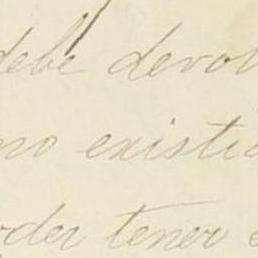 debe devol
no existi
der tener